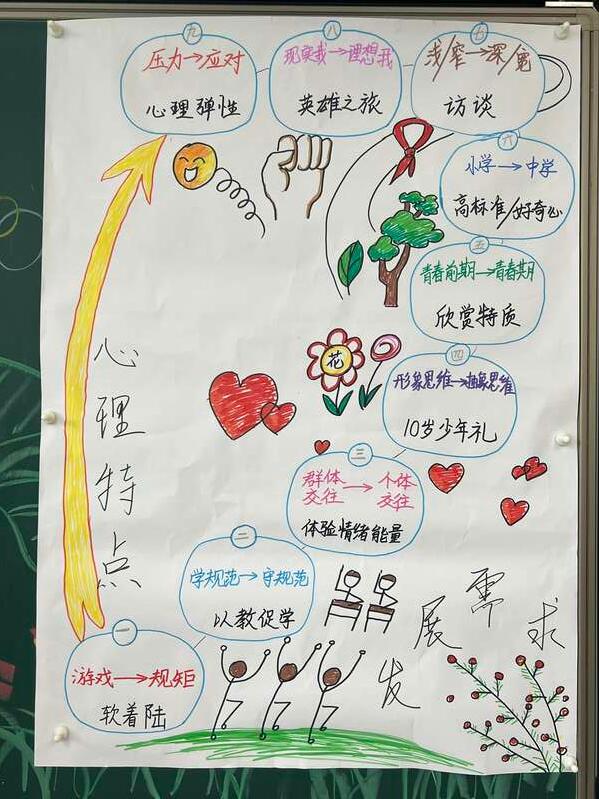 九
压力→应对
心理弹性
八
现实我→理想我
英雄之旅
七
浅/窄→深/宽
访谈
六
小学→中学
高标准/好奇心
五
青春前期→青春期
欣赏特质
四
形象思维→抽象思维
10岁少年礼
花
三
群体交往→个体交往
体验情绪能量
二
学规范→守规范
以教促学
一
游戏→规矩
软着陆
心理特点
发展需求